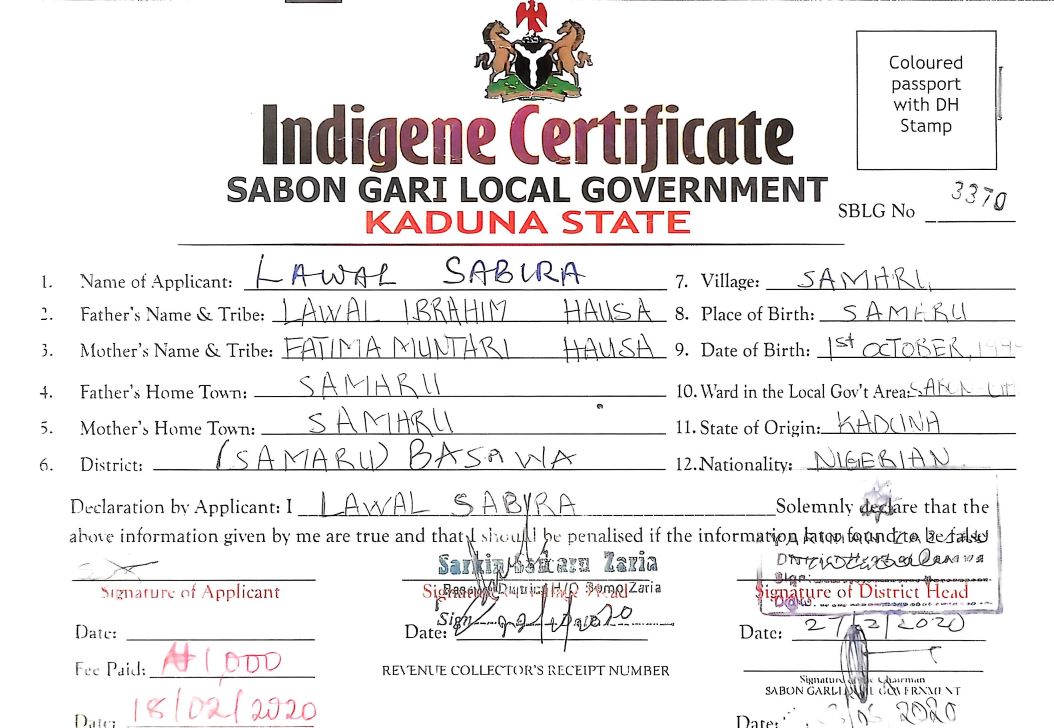 Coloured
passport
with DH
Stamp
Indigene Certificate
SABON GARI LOCAL GOVERNMENT
KADUNA STATE
SBLG No 3370
1. Name of Applicant: LAWAL SABIRA
2. Father's Name & Tribe: LAWAL IBRAHIM HAUSA
3. Mother's Name & Tribe: FATIMA MUNTARI HAUSA
4. Father's Home Town: SAMARU
5. Mother's Home Town: SAMARU
6. District: (SAMARU) BASAWA
7. Village: SAMARU
8. Place of Birth: SAMARU
9. Date of Birth: 1st OCTOBER,
10. Ward in the Local Gov't Area:
11. State of Origin: KADUNA
12. Nationality: NIGERIAN
Declaration by Applicant: I LAWAL SABIRA Solemnly declare that the
above information given by me are true and that I should be penalised if the information later found to be false
Signature of Applicant
Date:
Fee Paid: ₦1,000
Date: 18/02/2020
Sarkin Samaru Zaria
Signature Head
Sign
Date:
REVENUE COLLECTOR'S RECEIPT NUMBER
Signature of District Head
Date: 27/2/2020
Signature of the Chairman
SABON GARI LOCAL GOVERNMENT
Date: 2020